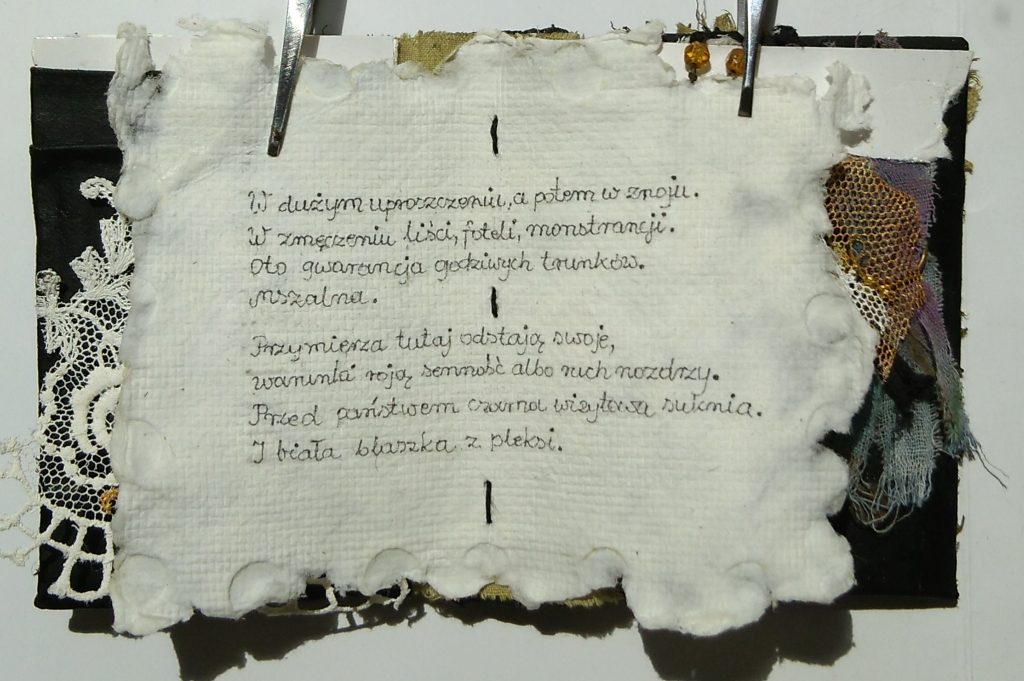 W dużym uproszczeniu, a potem w znoju.
W zmęczeniu liści, foteli, monstrancji.
Oto gwarancja godziwych trunków.
Mszalna.
Przymierza tutaj odstają swoje,
roją senność albo ruch nozdrzy.
Przed państwem czarna wizytowa suknia.
I biała bluszka z pleksi.